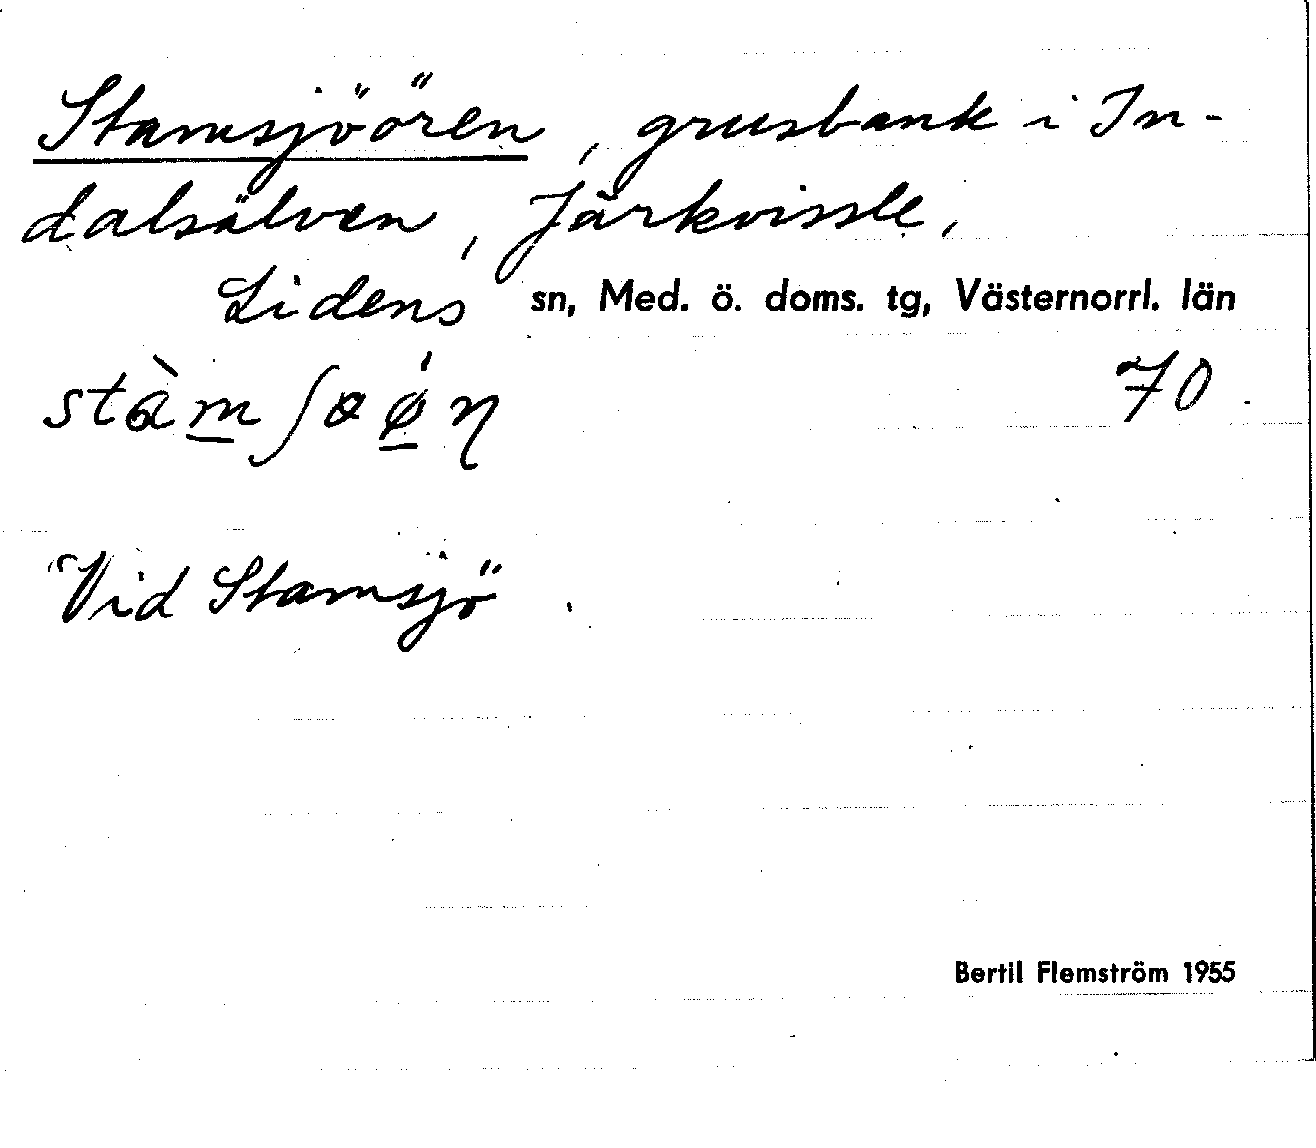 Stamsjöören, grusbank i In-
dalsälven, Järkvissle,
Lidens sn, Med. ö. doms. tg, Västernorrl. län
70.
Vid Stamsjö
Bertil Flemström 1955